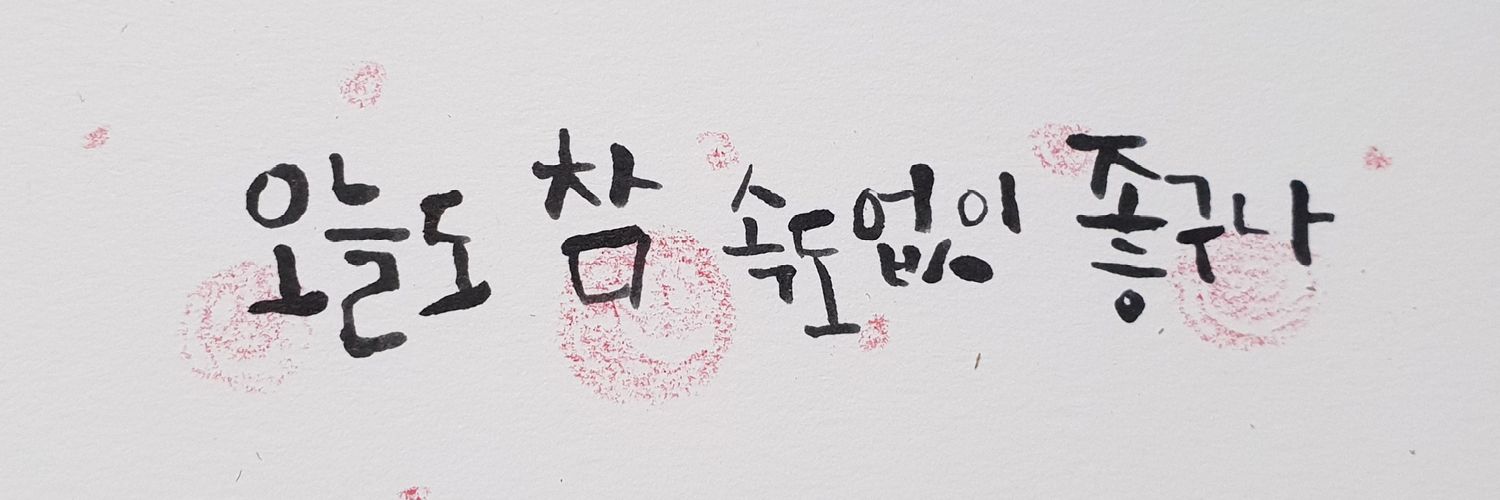 오늘도 참 속도없이 좋구나